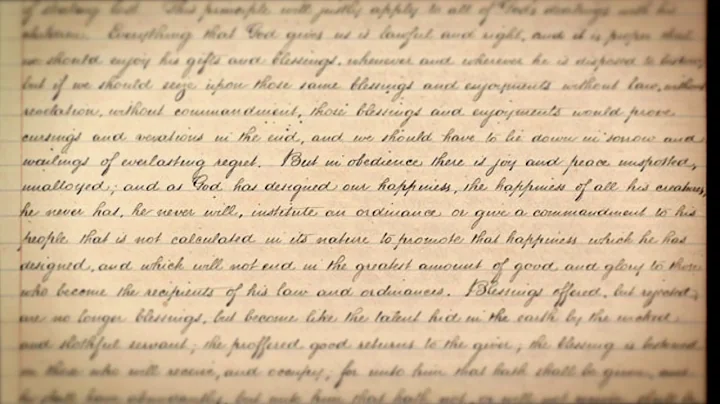 of stealing kid. This principle will justly apply to all of God's dealings with his
children. Everything that God gives us is lawful and right, and it is proper that
we should enjoy his gifts and blessings, whenever and wherever he is disposed to bestow;
but if we should seize upon those same blessings and enjoyments without law, without
revelation, without commandment, those blessings and enjoyments would prove
cursings and vexations in the end, and we should have to lie down in sorrow and
wailings of everlasting regret. But in obedience there is joy and peace unspotted,
unalloyed; and as God has designed our happiness, the happiness of all his creatures,
he never has, he never will, institute an ordinance or give a commandment to his
people that is not calculated in its nature to promote that happiness which he has
designed, and which will not end in the greatest amount of good and glory to those
who become the recipients of his law and ordinances. Blessings offered, but rejected,
are no longer blessings, but become like the talent hid in the earth by the wicked
and slothful servant; the proffered good returns to the giver; the blessing is bestowed
on those who will receive, and occupy; for unto him that hath shall be given, and
he shall have abundantly, but unto him that hath not, or will not receive, shall be